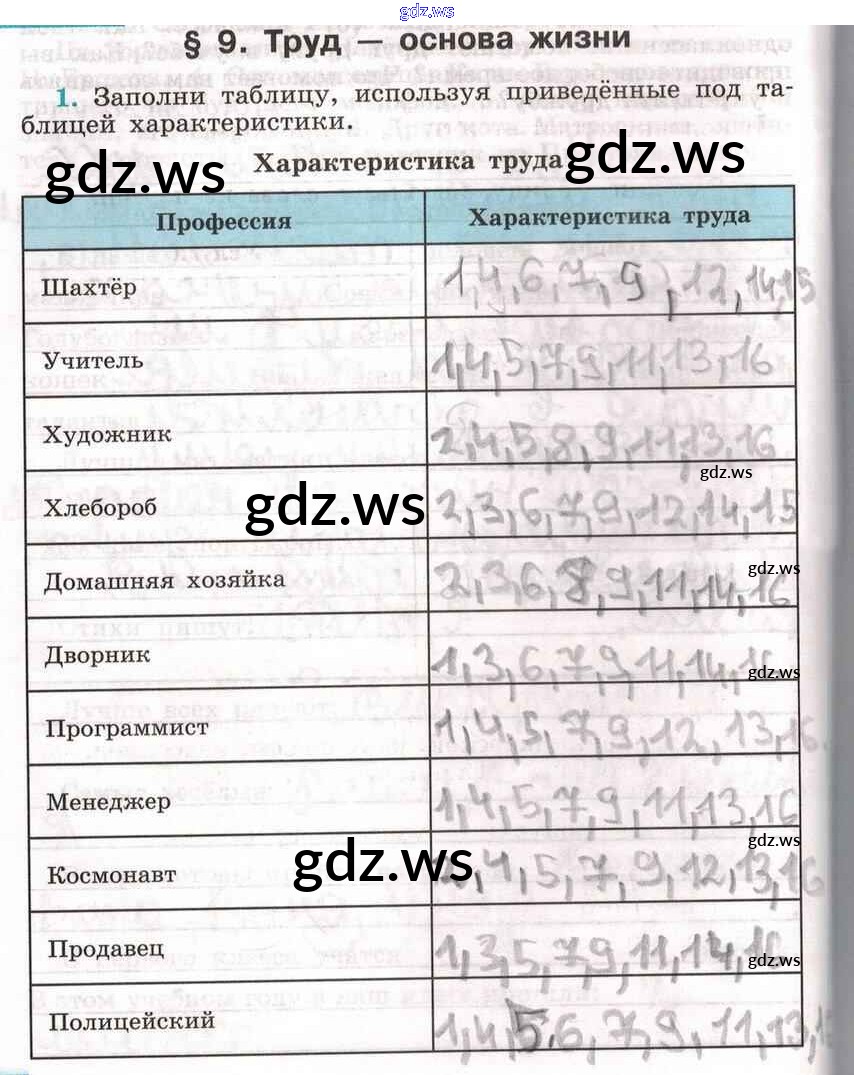 gdz.ws
§ 9. Труд — основа жизни
1. Заполни таблицу, используя приведённые под та-
блицей характеристики.
Характеристика труда
gdz.ws
gdz.ws
Профессия Характеристика труда
Шахтёр 1,4,6,7,9,12,14,15
Учитель 1,4,5,7,9,11,13,16
Художник 2,4,5,8,9,11,13,16
gdz.ws
Хлебороб 2,3,6,7,9,12,14,15
gdz.ws
Домашняя хозяйка 2,3,6,8,9,11,14,16
gdz.ws
Дворник 1,3,6,7,9,11,14,16
gdz.ws
Программист 1,4,5,7,9,12,13,16.
Менеджер 1,4,5,7,9,11,13,16
gdz.ws
gdz.ws
Космонавт 4,5,7,9,12,13,16
Продавец 1,3,5,7,9,11,14,16
gdz.ws
Полицейский 1,4,5,6,7,9,11,13,